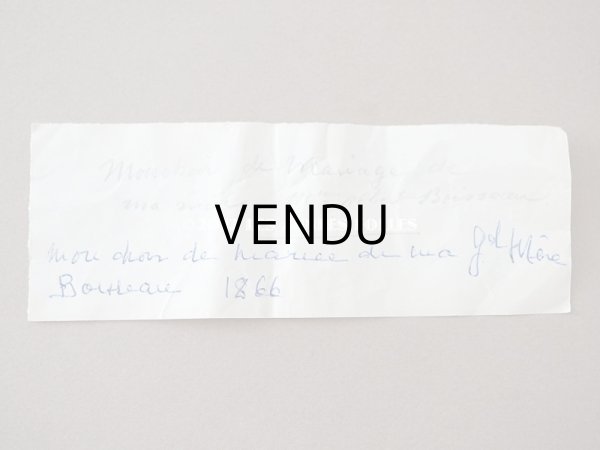 Mouchoir de Mariage de
ma Boisseau
VENDU
Mouchoir de mariee de ma Gd Mère
Boisseau 1866